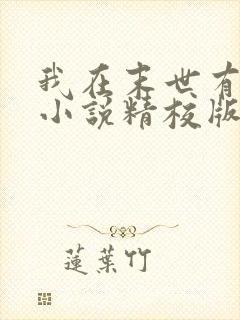 我在末世有
小说精校版
莲葉竹